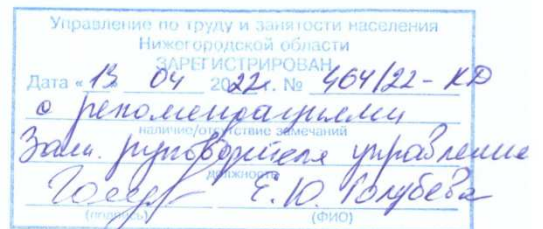 Управление по труду и занятости населения
Нижегородской области
ЗАРЕГИСТРИРОВАН
Дата « 13 » 04 2022г. № 464/22-КД
с рекомендациями
наличие/отсутствие замечаний
Зам. руководителя управления
должность
Голуб Е.Ю. Голубева
(подпись) (ФИО)